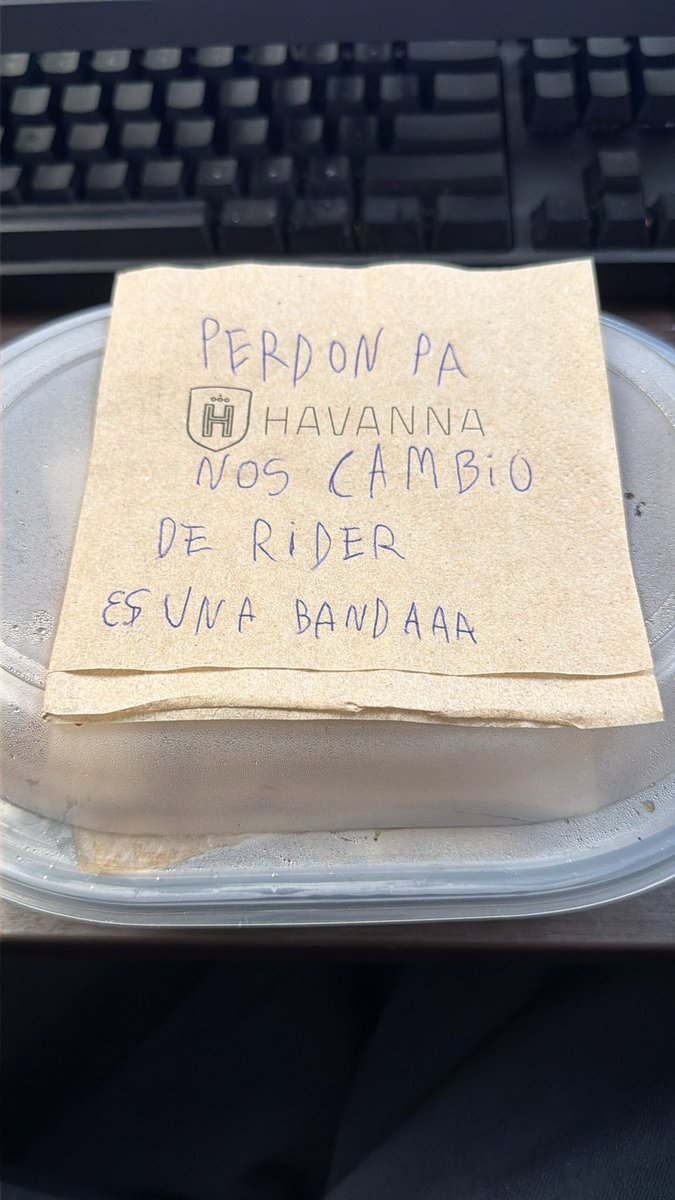 PERDON PA
HAVANNA
NOS CAMBiO
DE RiDER
ES UNA BANDAAA